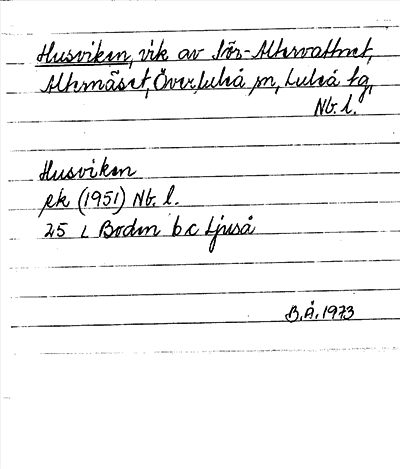 Husviken, vik av Sör-Altervattnet,
Alternäset, Överluleå sn, Luleå tg,
Nb. l.
Husviken
ek (1951) Nb. l.
25 L Boden b c Ljuså
B.Å. 1973